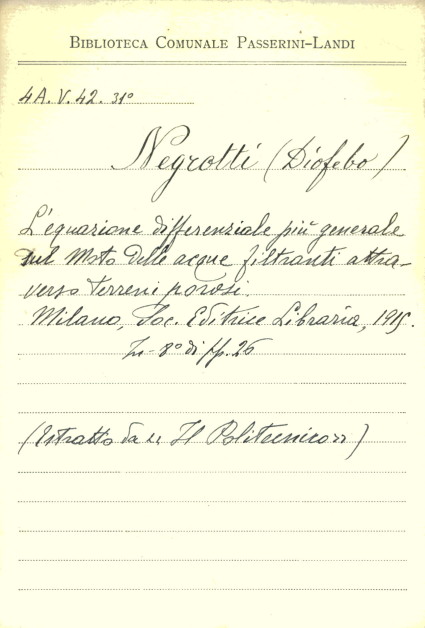 BIBLIOTECA COMUNALE PASSERINI-LANDI
4A.V.42.31º
Negrotti (Diofebo)
L'equazione differenziale più generale
sul Moto delle acque filtranti attra-
verso terreni porosi.
Milano, Soc. Editrice Libraria, 1915.
In-8º di pp. 26
(Estratto da "Il Politecnico")